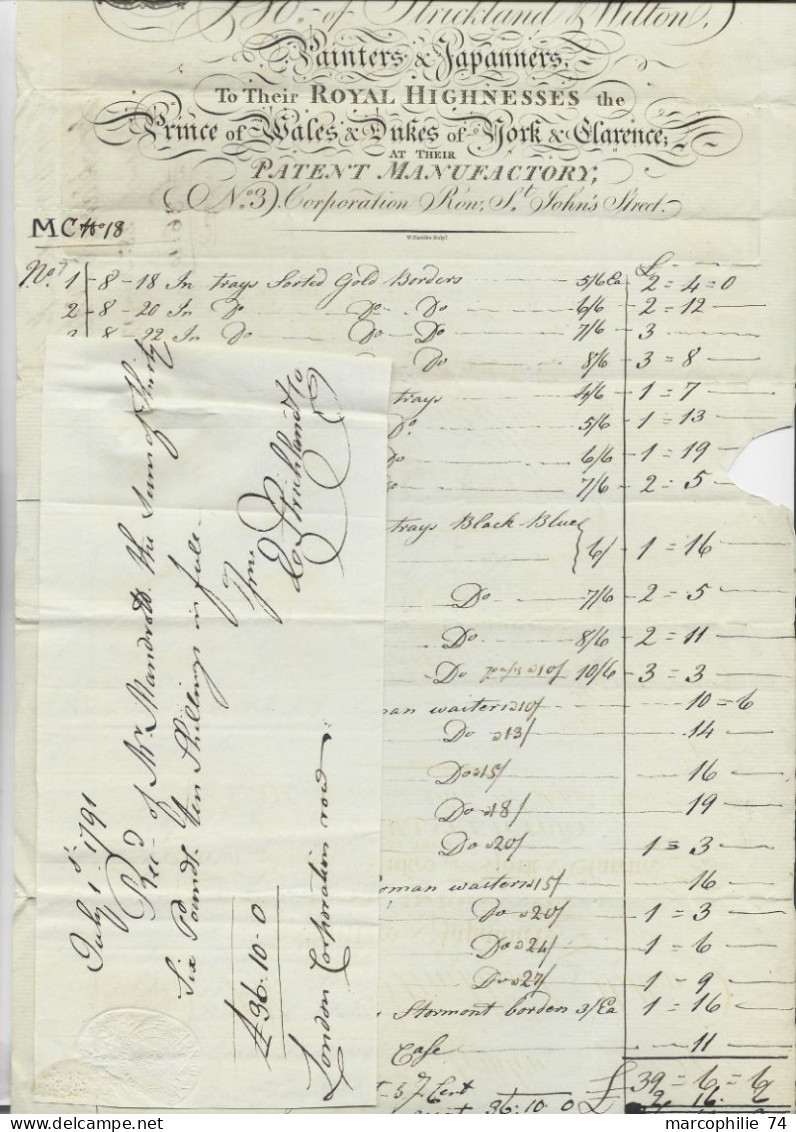 Bo.. of Strickland & Wilton,
Painters & Japanners,
To Their ROYAL HIGHNESSES the
Prince of Wales & Dukes of York & Clarence;
AT THEIR
PATENT MANUFACTORY,
(No. 3) Corporation Row, St. John's Street.
MC No 18
£
No. 1 - 8 - 18 In trays Sorted Gold Borders 5/6 Ea 2 = 4 = 0
2 - 8 - 20 In Do Do Do 6/6 - 2 = 12
3 8 - 22 In Do Do Do 7/6 - 3
Do 8/6 - 3 = 8
trays 4/6 - 1 = 7
Do 5/6 - 1 = 13
Do 6/6 - 1 = 19
7/6 - 2 = 5
trays Black Blue
6/ - 1 = 16
Do 7/6 - 2 = 5
Do 8/6 - 2 = 11
Do 10/6 - 3 = 3
man waiters a 10/ 10 = 6
Do a 13/ 14
Do a 15/ 16
Do a 18/ 19
Do a 20/ 1 = 3
oman waiters a 15/ 16
Do a 20/ 1 = 3
Do a 24/ 1 = 6
Do a 27/ 1 - 9
Stormont borders 3/ Ea 1 = 16
Case 11
£ 39 = 6 = 6
5 P Cent 2 16 6
36 . 10 0 £
July 1st 1791
Recd of Mr. Mandrott the Sum of Thirty
Six Pounds ten Shillings in full
Strickland & Co
£36.10.0
London Corporation row
marcophilie 74